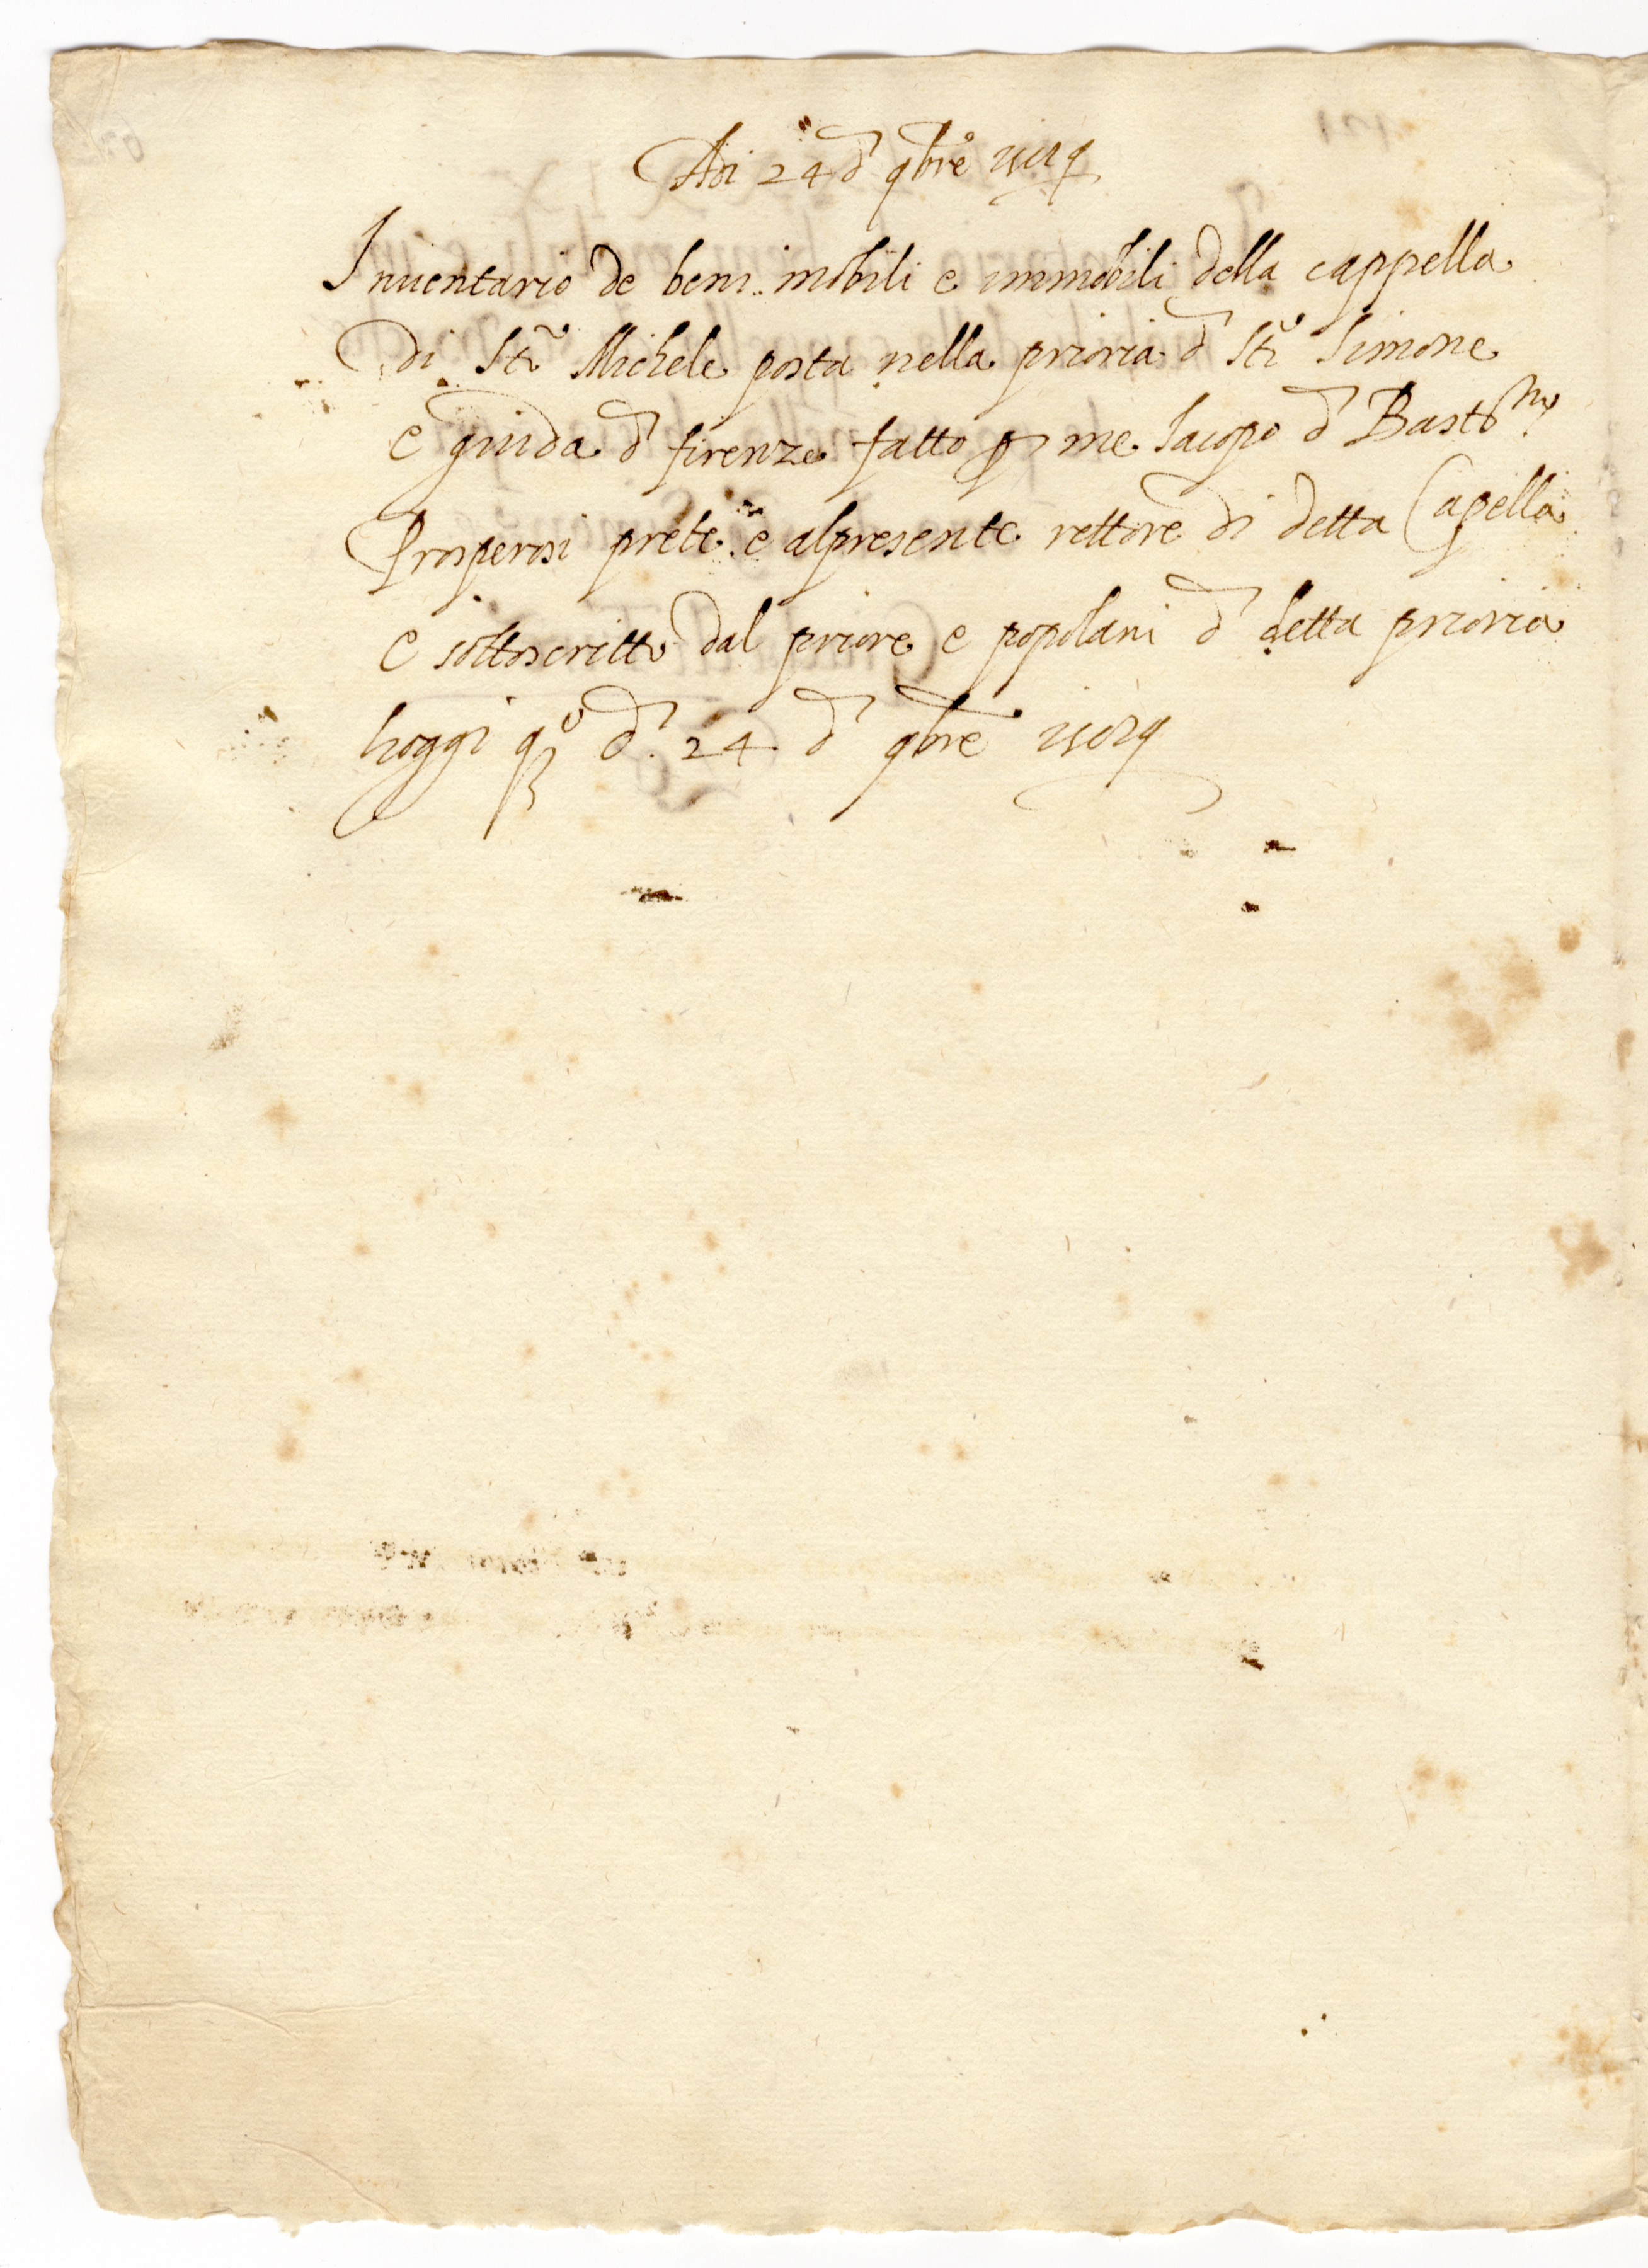 Adi 24 d 9bre
Inventario de beni mobili e immobili della cappella
di Sto Michele posta nella prioria d Sto Simone
e giuda d firenze fatto p me Iacopo d Basto
Prosperosi prete e alpresente rettore di detta Capella
e sottoscritto dal priore e popolani d detta prioria
hoggi qo d 24 d 9bre